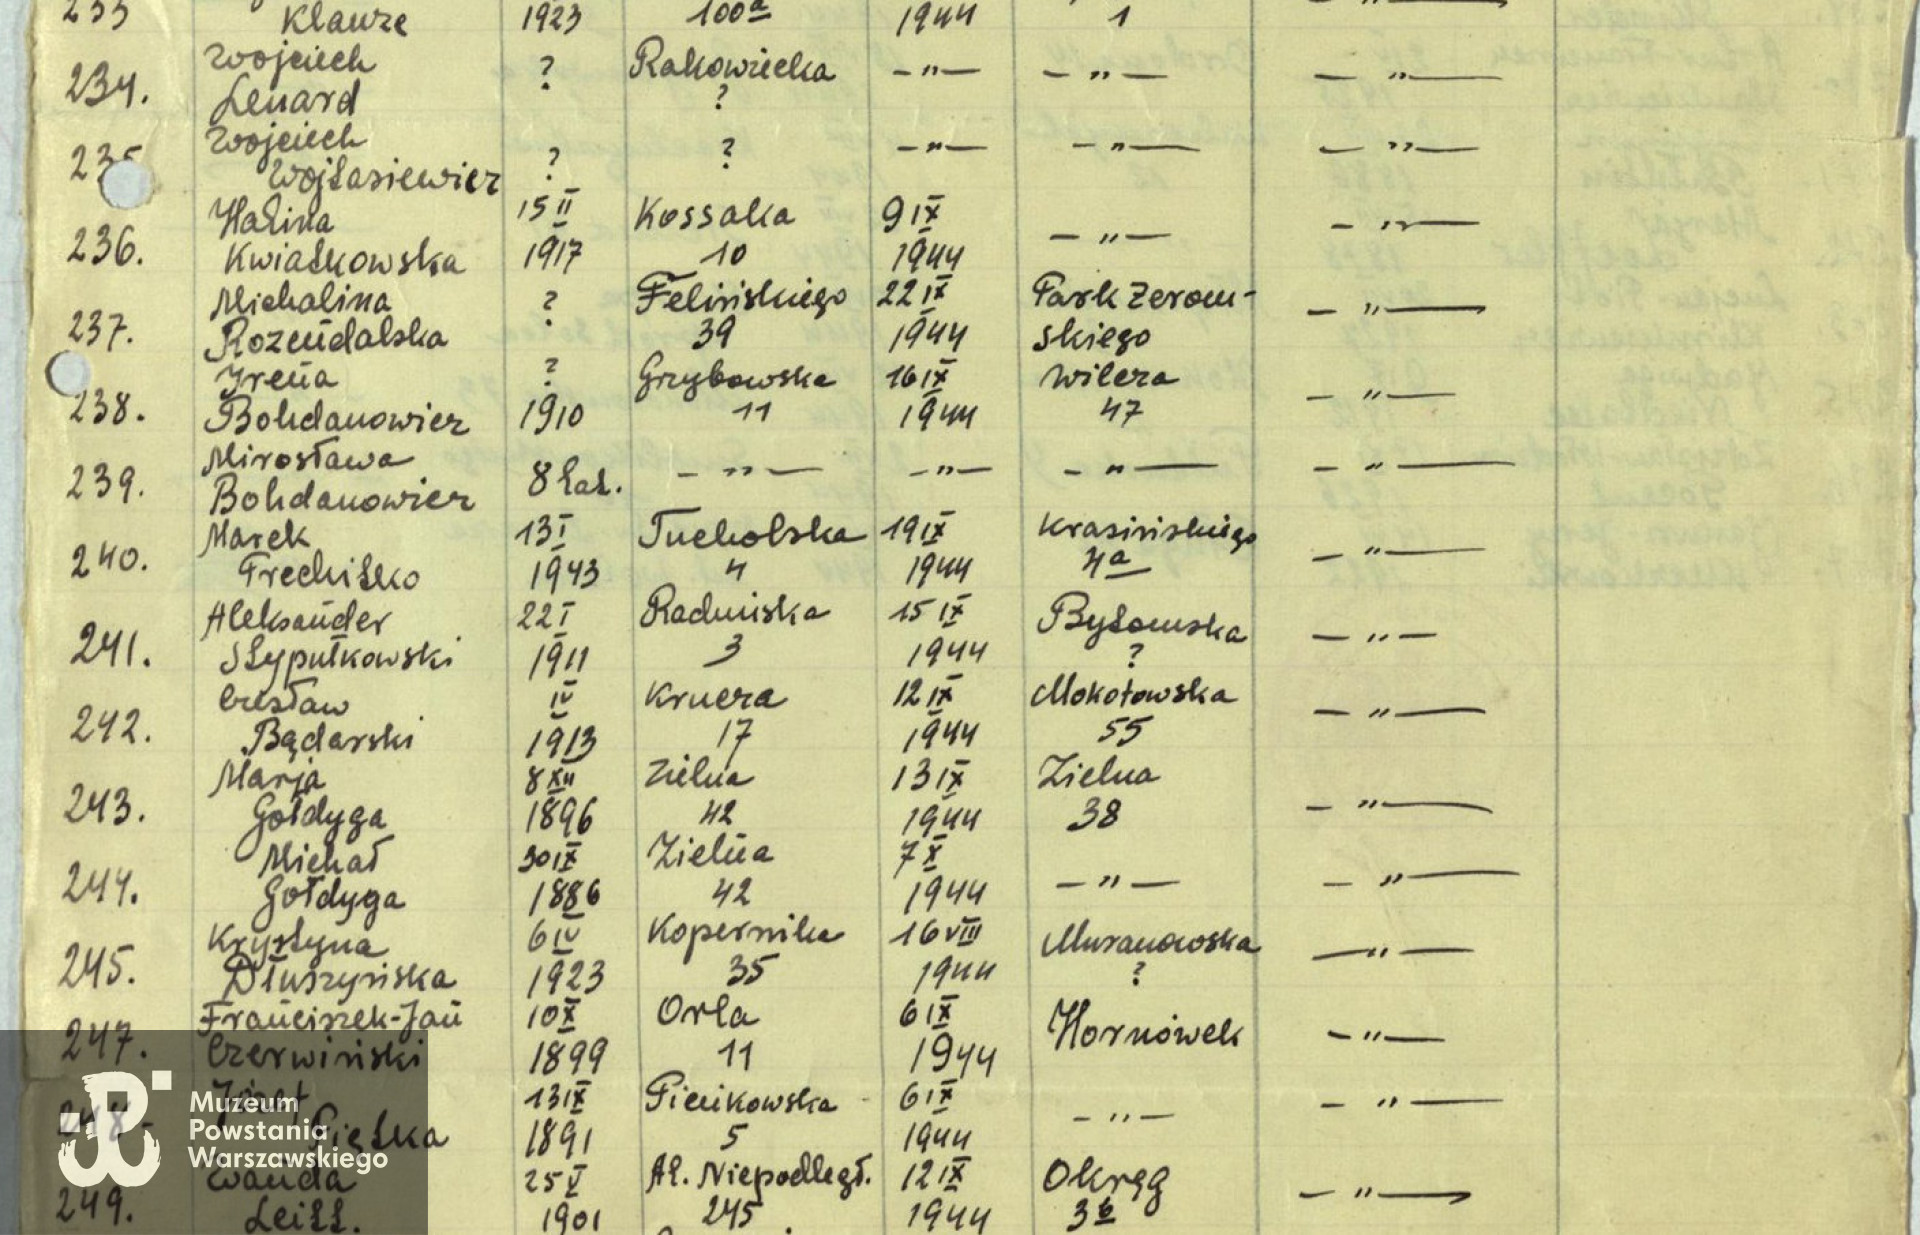 233 Klauze 1923 100a 1944 1 - " -
234. Wojciech Lenard ? Rakowiecka ? - " - - " - - " -
235 Wojciech Wojtasiewicz ? ? - " - - " - - " -
236. Halina Kwiatkowska 15 II 1917 Kossaka 10 9 IX 1944 - " - - " -
237. Michalina Rozendalska ? Felińskiego 39 22 IX 1944 Park Żerom-skiego - " -
238. Irena Bohdanowicz ? 1910 Grzybowska 11 16 IX 1944 Wilcza 47 - " -
239. Mirosława Bohdanowicz 8 lat. - " - - " - - " - - " -
240. Marek Frechitko 13 I 1943 Tucholska 4 19 IX 1944 Krasińskiego 4a - " -
241. Aleksander Stypułkowski 22 I 1911 Radmiska 3 15 IX 1944 Bytomska ? - " -
242. Czesław Bądarski IV 1913 Krucza 17 12 IX 1944 Mokotowska 55 - " -
243. Marja Gołdyga 8 XII 1896 Zielna 42 13 IX 1944 Zielna 38 - " -
244. Michał Gołdyga 30 IX 1886 Zielna 42 7 X 1944 - " - - " -
245. Krystyna Dłuszyńska 6 IV 1923 Kopernika 35 16 VIII 1944 Muranowska ? - " -
247. Franciszek-Jan Czerwiński 10 X 1899 Orla 11 6 IX 1944 Hornówek - " -
248. Józef Piętka 13 IX 1891 Pienkowska 5 6 IX 1944 - " - - " -
249. Wanda Leitt. 25 V 1901 Al. Niepodległ. 245 12 IX 1944 Okrąg 3b - " -
Muzeum
Powstania
Warszawskiego